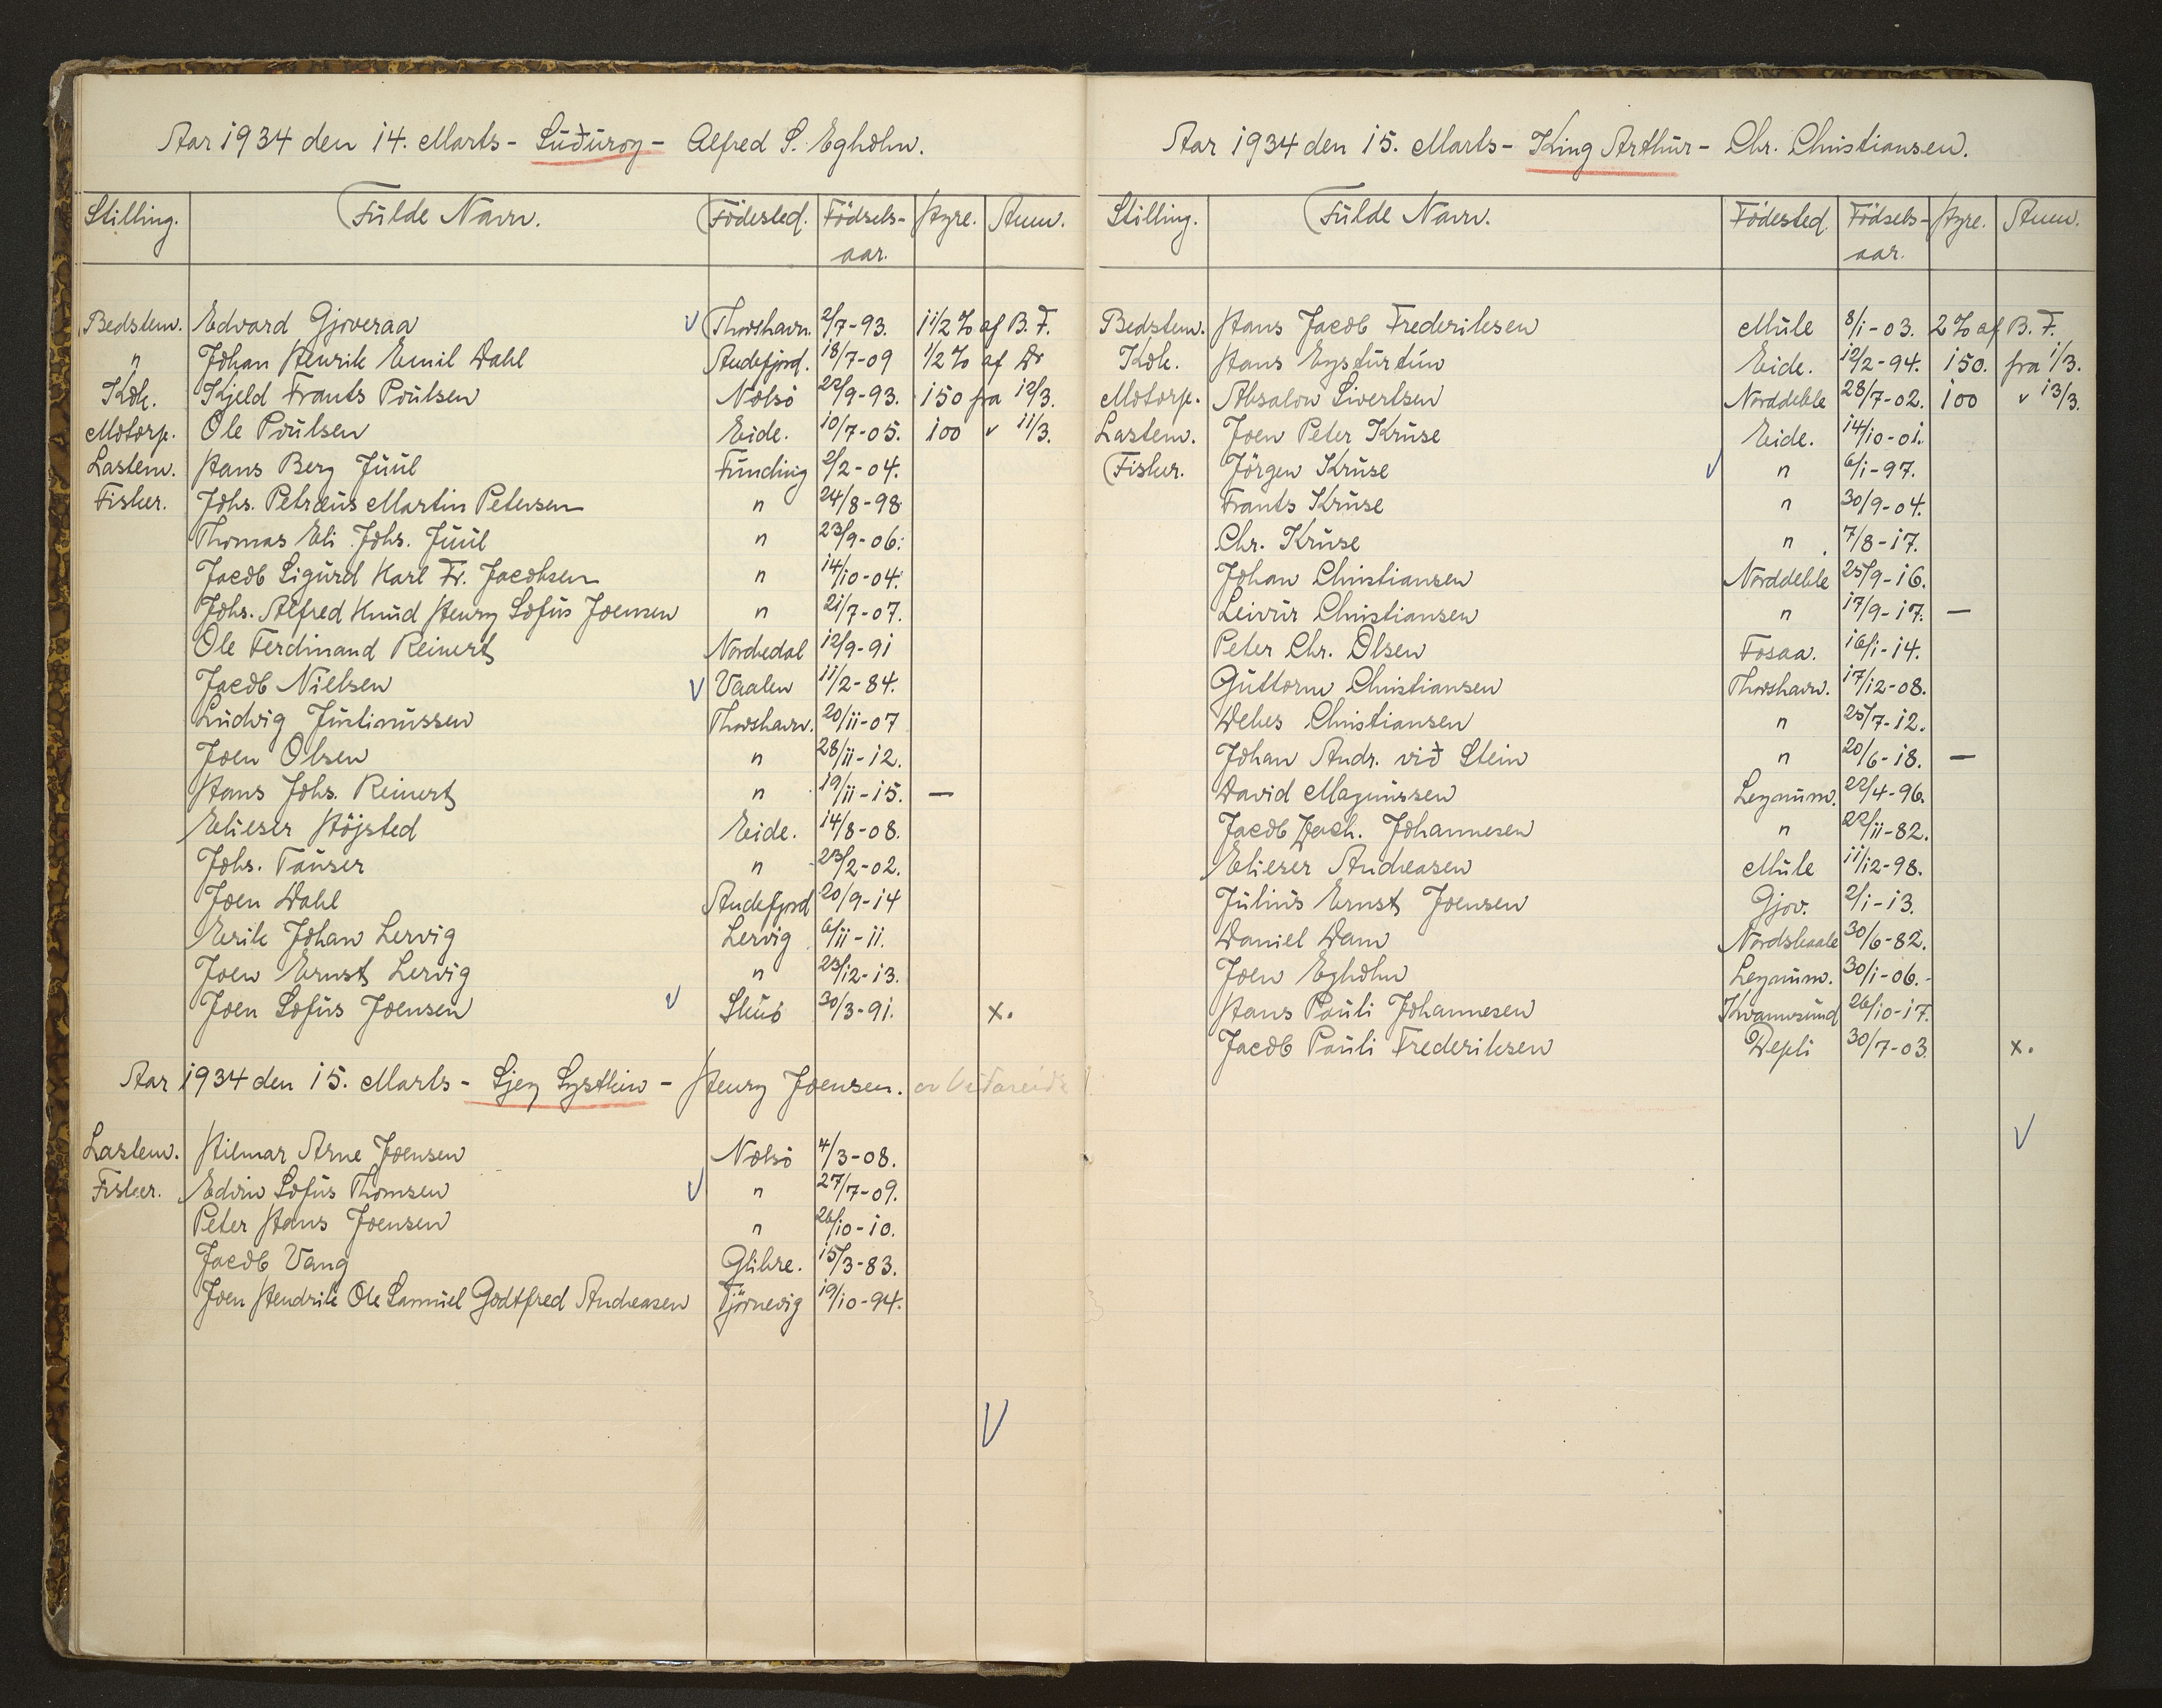 Aar 1934 den 14. Marts - Suðuroy - Alfred S. Egholm.
Stilling. Fulde Navn. Födested. Födsels-aar. Hyre. Anm.
Bedstem. Edvard Gjoveraa V Thorshavn. 2/7-93. 1 1/2 % af B. F.
" Johan Henrik Emil Dahl Andefjord. 18/7-09 1/2 % af Do
Kok. Kjeld Frants Poulsen Nolsö 22/9-93. 150 fra 12/3.
Motorp. Ole Poulsen Eide. 10/7-05. 100 " 11/3.
Lastem. Hans Berg Juul Funding 2/2-04.
Fisker. Johs. Petræus Martin Petersen " 24/8-98
Thomas Eli Johs. Juul " 23/9-06.
Jacob Sigurd Karl Fr. Jacobsen " 14/10-04.
Johs. Alfred Knud Henry Sofus Joensen " 21/7-07.
Ole Ferdinand Reinert Nordredal 12/9-91
Jacob Nielsen V Vaalen 11/2-84.
Ludvig Justinussen Thorshavn. 20/11-07
Joen Olsen " 28/11-12.
Hans Johs. Reinert " 19/11-15. —
Elieser Höjsted Eide. 14/8-08.
Johs. Tauser " 23/2-02.
Joen Dahl Andefjord 20/9-14
Erik Johan Lervig Lervig 6/11-11.
Joen Ernst Lervig " 23/12-13.
Joen Sofus Joensen V Skuö 30/3-91. x.
Aar 1934 den 15. Marts - Sjey Systkin - Henry Joensen.
Lastem. Hilmar Arne Joensen Nolsö 4/3-08.
Fisker. Edvin Sofus Thomsen V " 27/7-09.
Peter Hans Joensen " 26/10-10.
Jacob Vang Glibre. 15/3-83.
Joen Hendrik Ole Samuel Godtfred Andreasen Tjörnevig 19/10-94.
V
Aar 1934 den 15. Marts - King Arthur - Chr. Christiansen.
Stilling. Fulde Navn. Födested. Födsels-aar. Hyre. Anm.
Bedstem. Hans Jacob Frederiksen Mule 8/1-03. 2 % af B. F.
Kok. Hans Eysturtun Eide. 12/2-94. 150. fra 1/3.
Motorp. Absalon Sivertsen Norddeble 28/7-02. 100 " 13/3.
Lastem. Joen Peter Kruse Eide. 14/10-01.
Fisker. Jörgen Kruse V " 6/1-97.
Frants Kruse " 30/9-04.
Chr. Kruse " 7/8-17.
Johan Christiansen Norddeble 25/9-16.
Leivur Christiansen " 17/9-17. —
Peter Chr. Olsen Fosaa. 16/1-14.
Guttorm Christiansen Thorshavn. 17/12-08.
Debes Christiansen " 25/7-12.
Johan Andr. við Stein " 20/6-18. —
David Magnussen Leynum. 22/4-96.
Jacob Zach. Johannesen " 22/11-82.
Elieser Andreasen Mule 11/12-98.
Julius Ernst Joensen Gjov. 2/1-13.
Daniel Dam Nordskaale 30/6-82.
Joen Egholm Leynum. 30/1-06.
Hans Pauli Johannesen Kvannesund 26/10-17.
Jacob Pauli Frederiksen Depli 30/7-03. x.
V